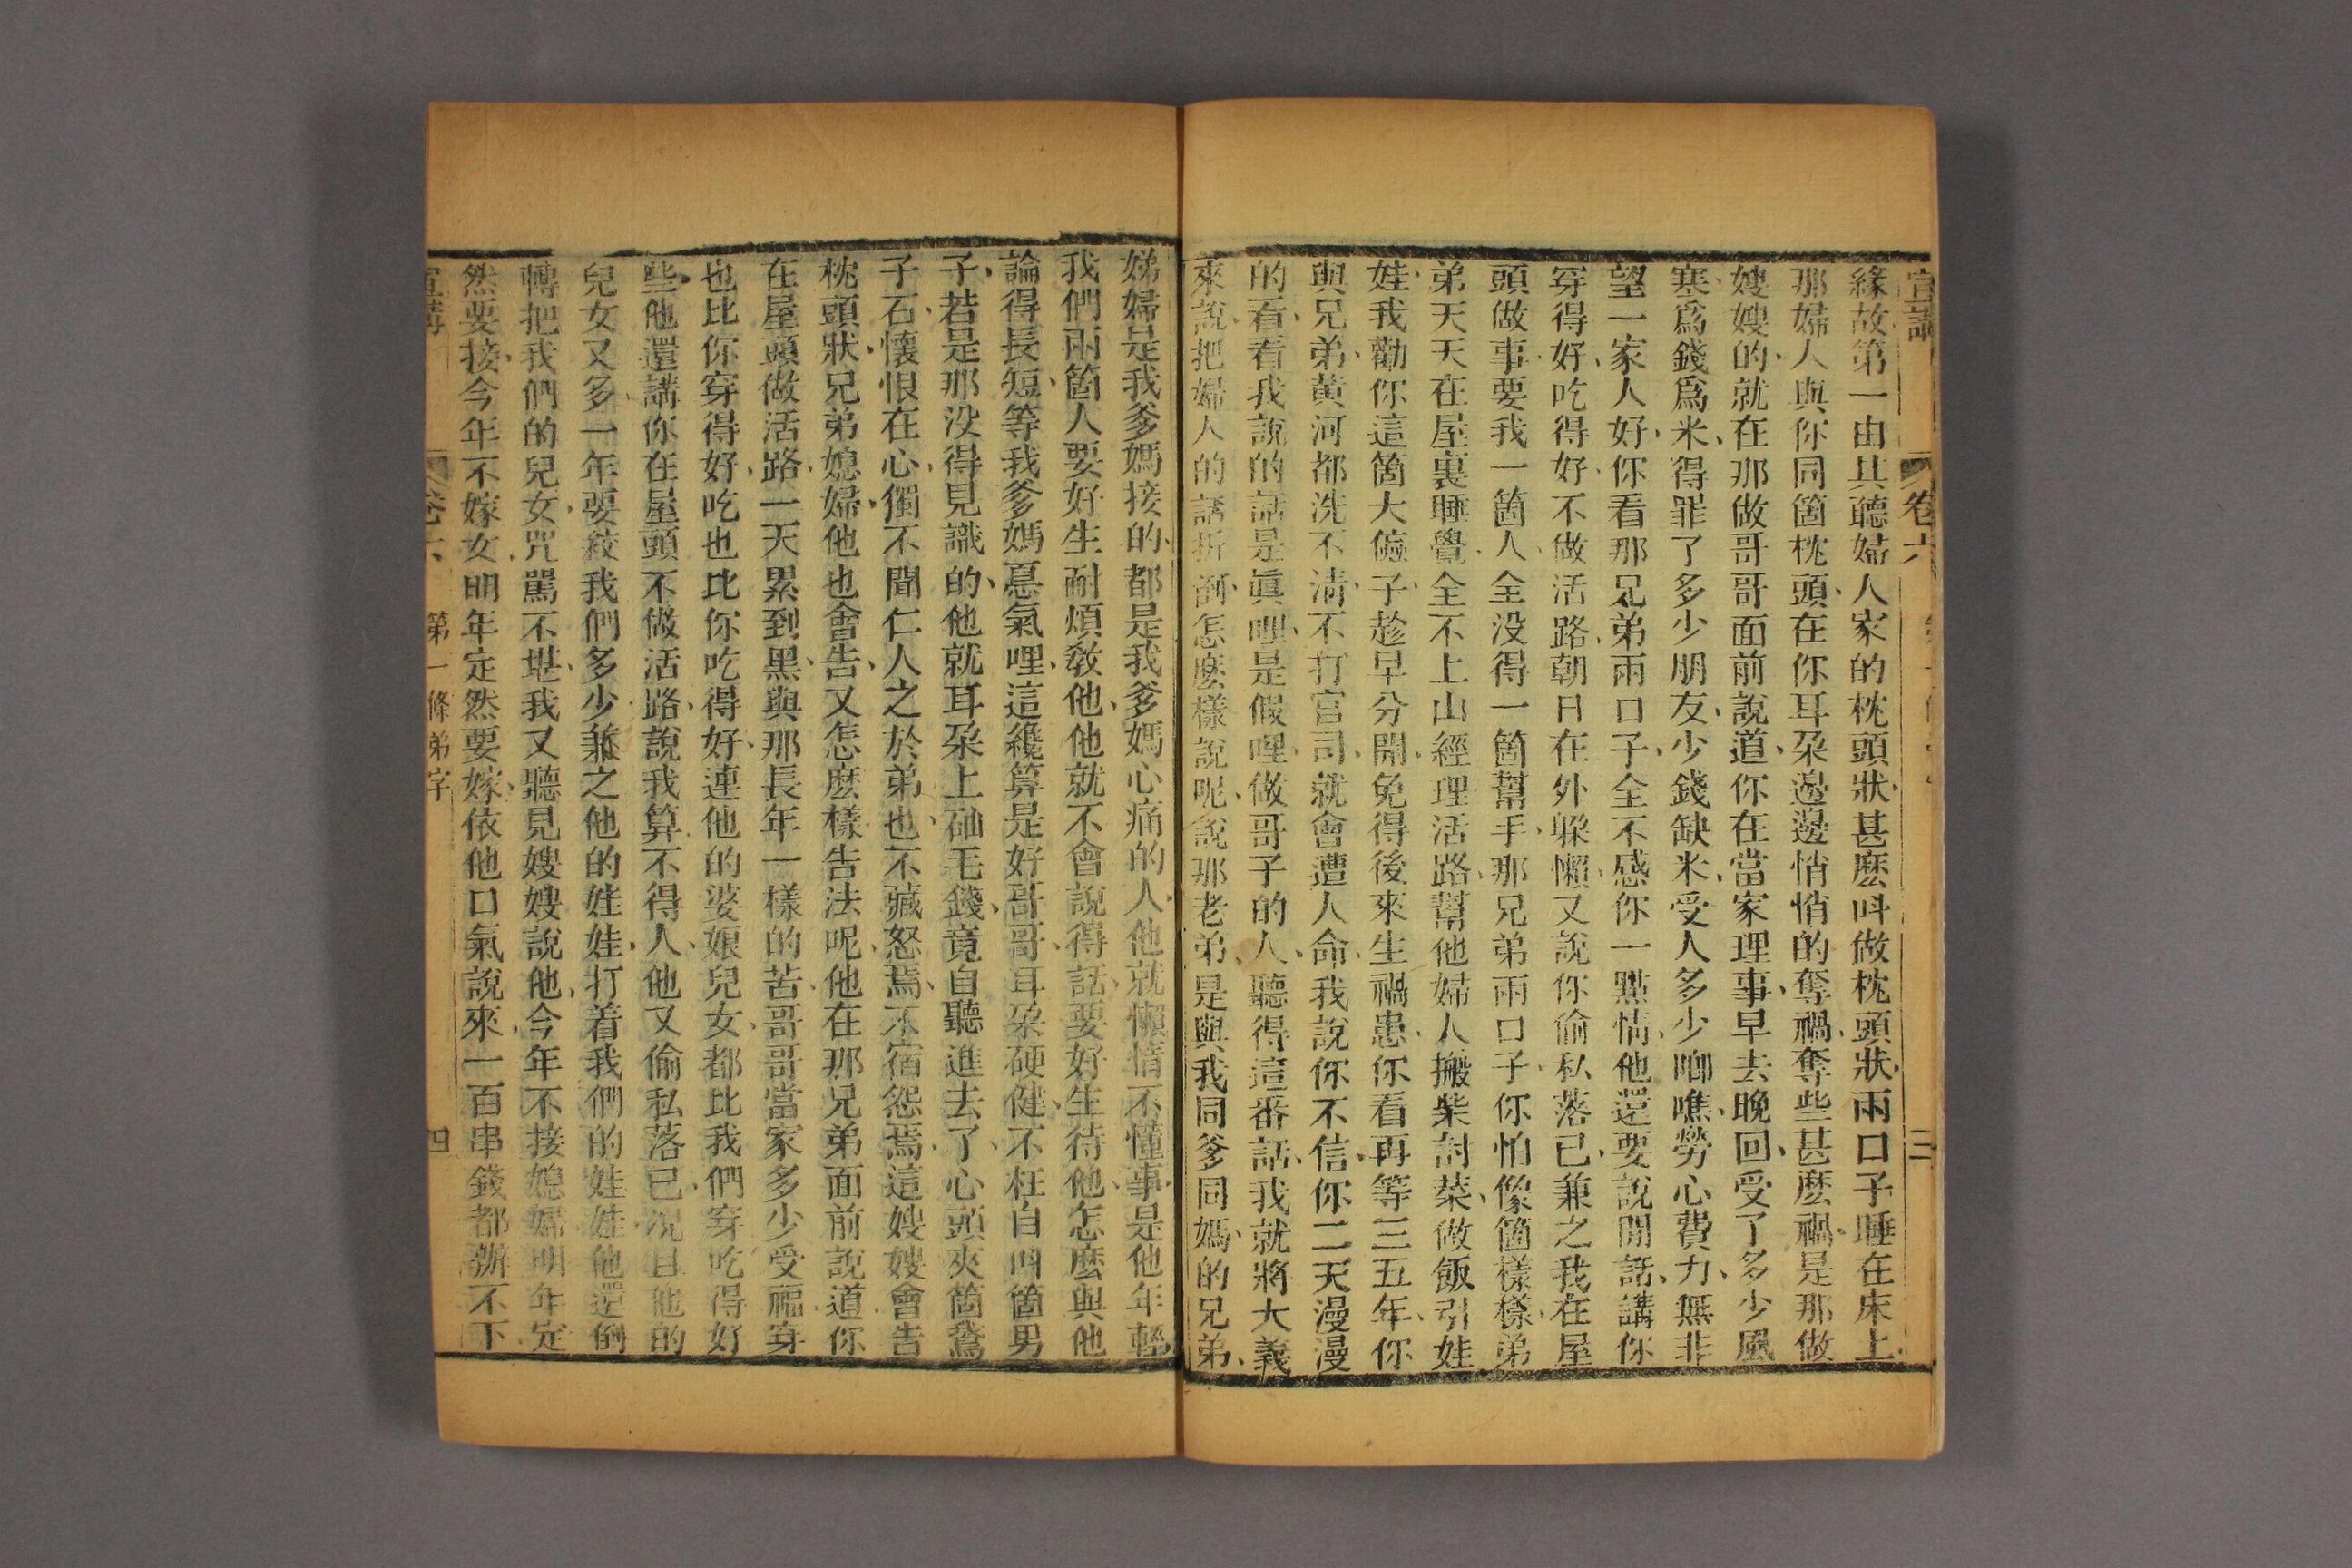 宣講 卷六 三
緣故第一由其聽婦人家的枕頭狀甚麽呌做枕頭狀兩口子睡在床上
那婦人與你同箇枕頭在你耳朶邊邊悄悄的奪禍奪些甚麽禍是那做
嫂嫂的就在那做哥哥面前說道你在當家理事早去晚回受了多少風
寒爲錢爲米得罪了多少朋友少錢缺米受人多少啷噍勞心費力無非
望一家人好你看那兄弟兩口子全不感你一㸃情他還要說閒話講你
穿得好吃得好不做活路朝日在外躱懶又說你偷私落已兼之我在屋
頭做事要我一箇人全没得一箇幫手那兄弟兩口子你怕像箇樣樣弟
弟天天在屋裏睡覺全不上山經理活路幫他婦人搬柴討菜做飯引娃
娃我勸你這箇大傻子趁早分開免得後來生禍患你看再等三五年你
與兄弟黃河都洗不清不打官司就會遭人命我說你不信你二天漫漫
的看看我說的話是眞哩是假哩做哥子的人聽得這番話我就將大義
來說把婦人的話折剖怎麽樣說呢說那老弟是與我同爹同媽的兄弟
娣婦是我爹媽接的都是我爹媽心痛的人他就懶惰不懂事是他年輕
我們兩箇人要好生耐煩敎他他就不會說得話要好生待他怎麽與他
論得長短等我爹媽慪氣哩這纔算是好哥哥耳朶硬健不枉自呌箇男
子若是那没得見識的他就耳朶上砸毛錢竟自聽進去了心頭夾箇鵞
子石懷恨在心獨不聞仁人之於弟也不藏怒焉不宿怨焉這嫂嫂會告
枕頭狀兄弟媳婦他也會告又怎麽樣告法呢他在那兄弟面前說道你
在屋頭做活路一天累到黑與那長年一樣的苦哥哥當家多少受福穿
也比你穿得好吃也比你吃得好連他的婆娘兒女都比我們穿吃得好
些他還講你在屋頭不做活路說我算不得人他又偷私落已况且他的
兒女又多一年要絞我們多少兼之他的娃娃打着我們的娃娃他還倒
轉把我們的兒女咒駡不堪我又聽見嫂嫂說他今年不接媳婦明年定
然要接今年不嫁女明年定然要嫁依他口氣說來一百串錢都辦不下
宣講 卷六 第一條弟字 四